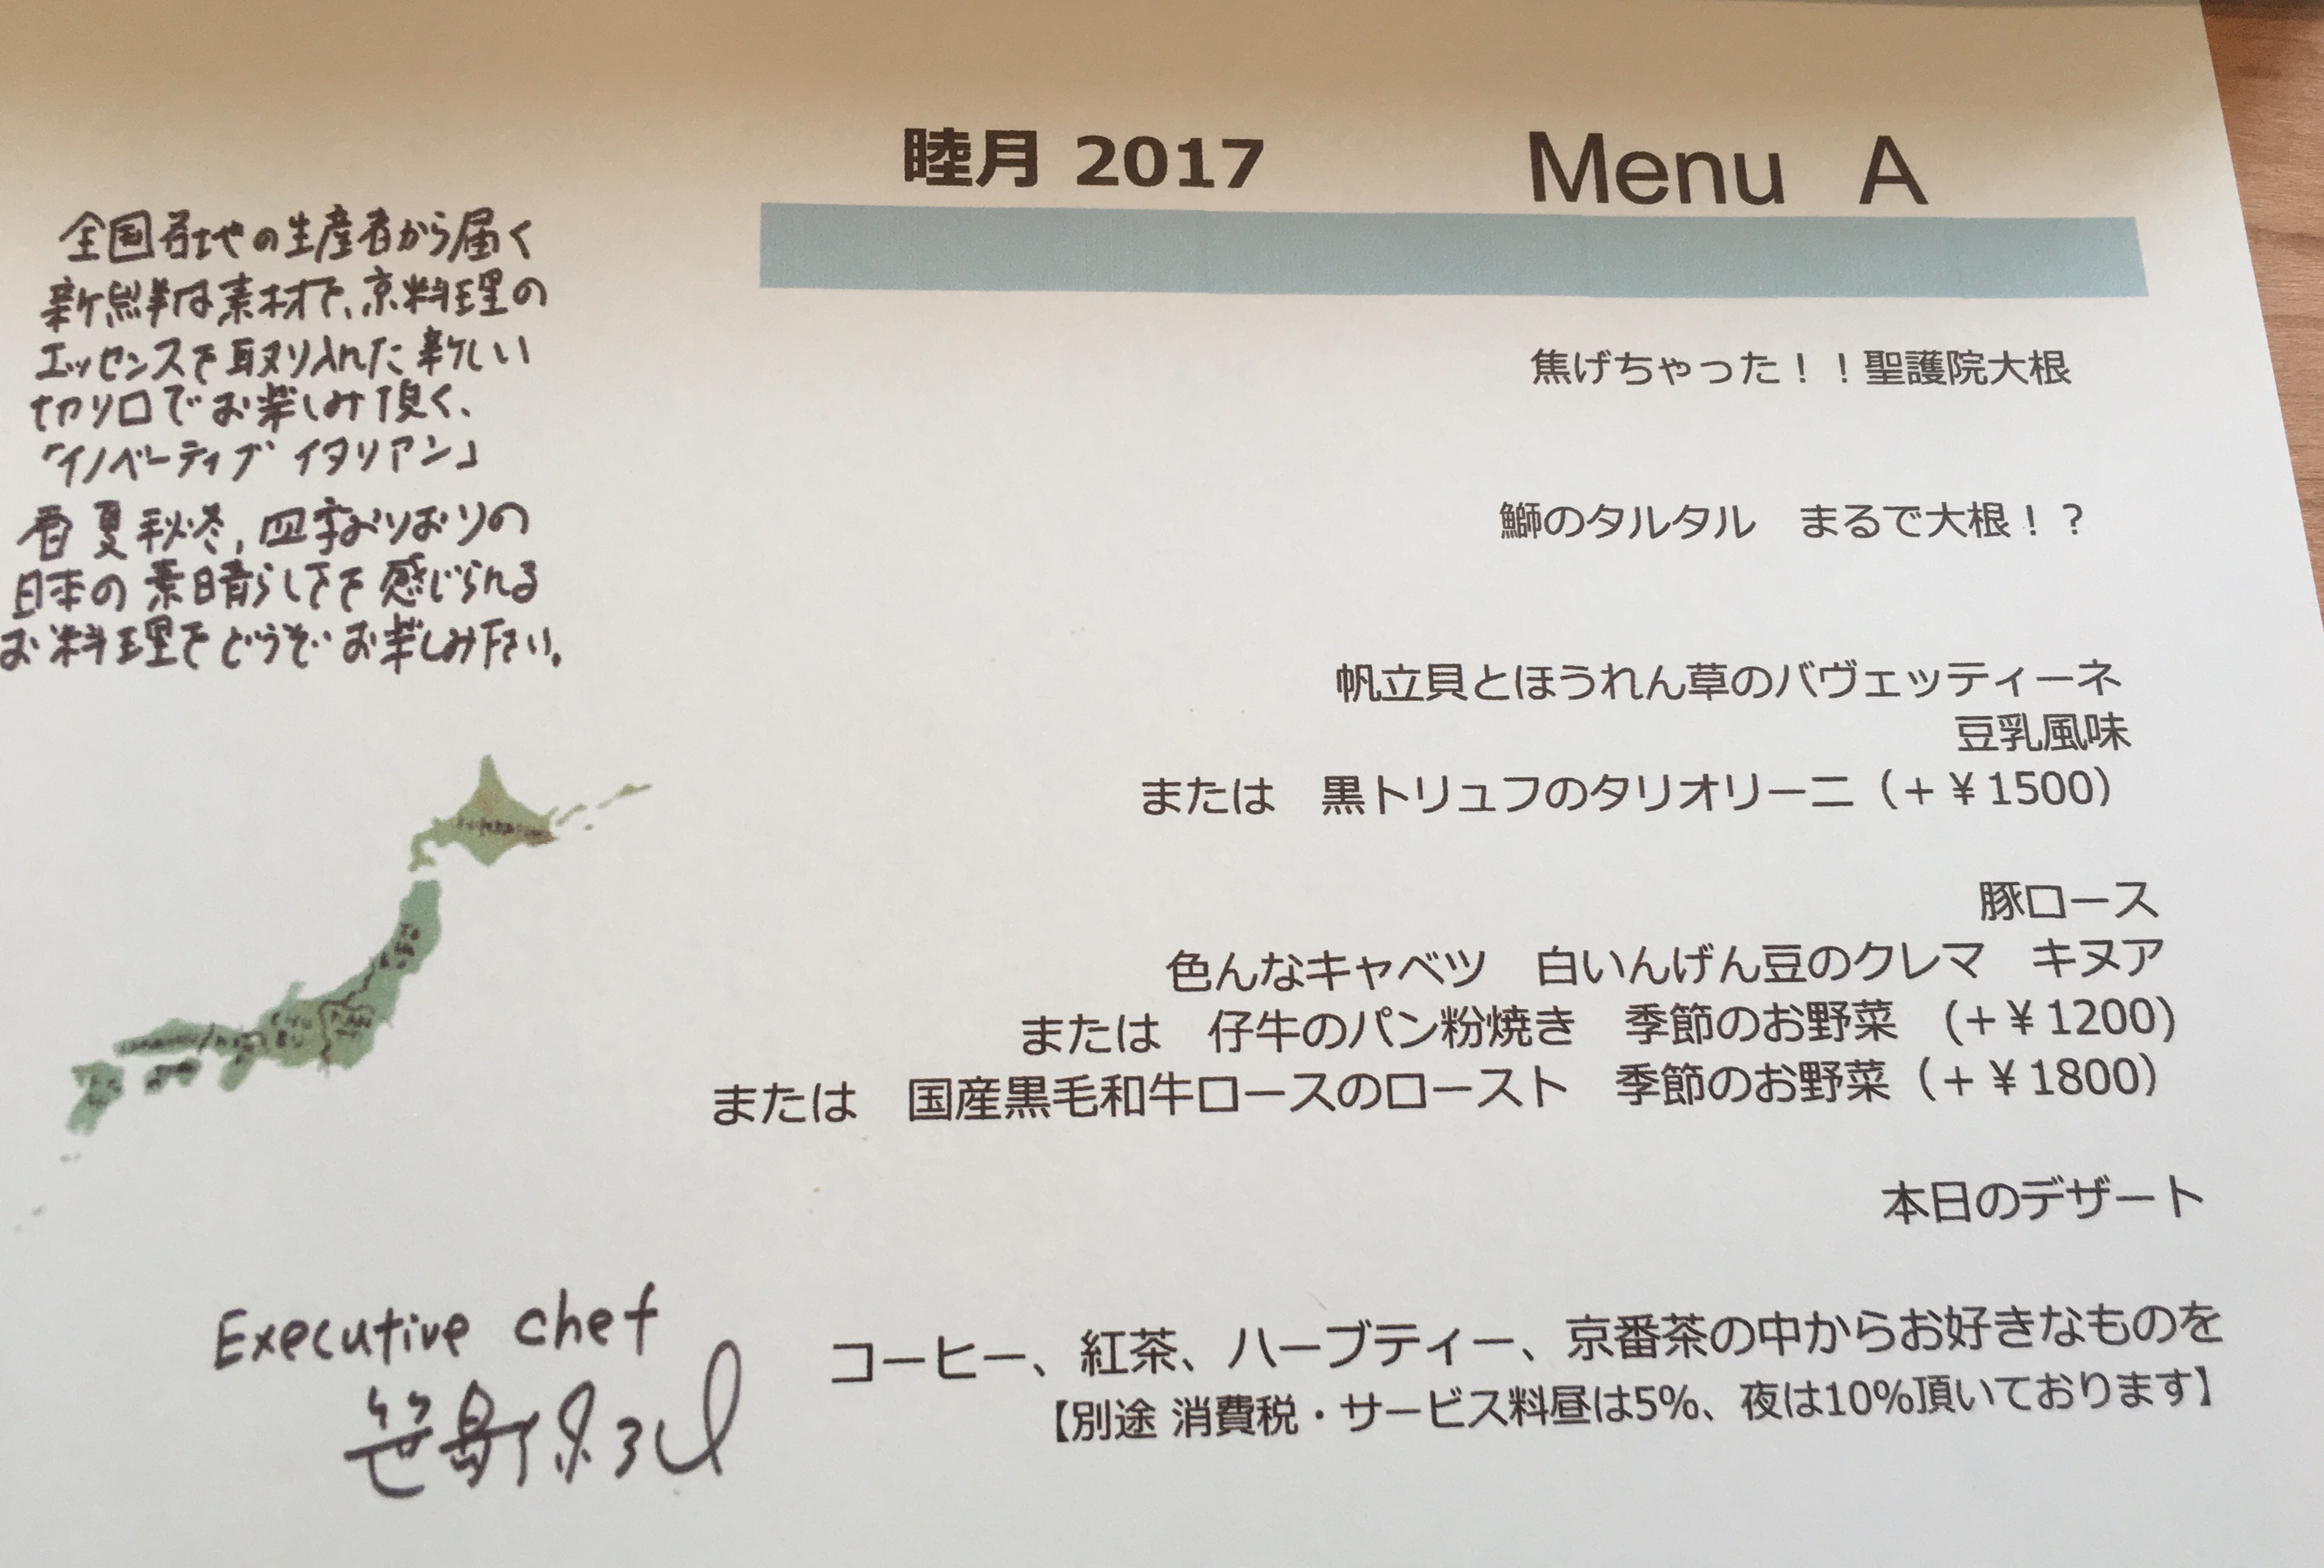 睦月 2017 Menu A
全国各地の生産者から届く
新鮮な素材で、京料理の
エッセンスを取り入れた新しい
切り口でお楽しみ頂く、
「イノベーティブ イタリアン」
春夏秋冬、四季おりおりの
日本の素晴らしさを感じられる
お料理をどうぞお楽しみ下さい。
Executive chef
焦げちゃった！！聖護院大根
鰤のタルタル　まるで大根！？
帆立貝とほうれん草のバヴェッティーネ
豆乳風味
または　黒トリュフのタリオリーニ（+￥1500）
豚ロース
色んなキャベツ　白いんげん豆のクレマ　キヌア
または　仔牛のパン粉焼き　季節のお野菜　(+￥1200)
または　国産黒毛和牛ロースのロースト　季節のお野菜（+￥1800）
本日のデザート
コーヒー、紅茶、ハーブティー、京番茶の中からお好きなものを
【別途 消費税・サービス料昼は5%、夜は10%頂いております】